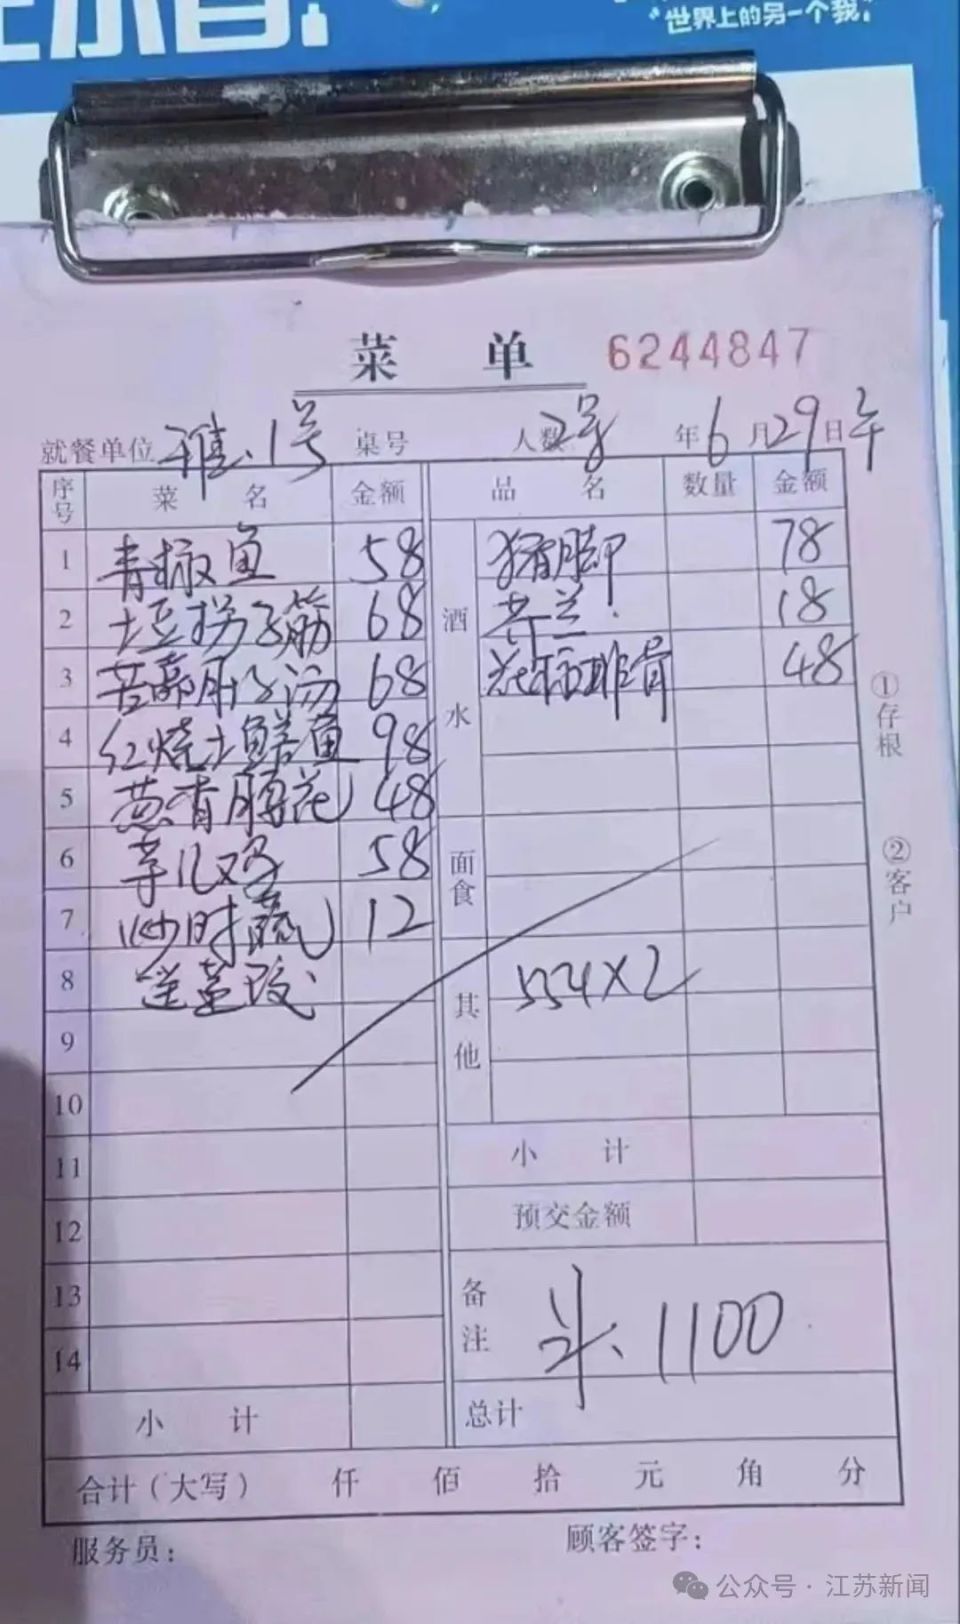 世界上的另一个我。
菜 单 6244847
就餐单位 雅.1号 桌号 人数 2号 年6月29日午
序号 菜 名 金额 品 名 数量 金额
1 青椒鱼 58 猪脚 78
2 土豆拐子筋 68 酒水 芥兰. 18
3 苦藠肚子汤 68 花椒排骨 48
4 红烧土鳝鱼 98
5 葱香腰花 48
6 芋儿鸡 58 面食
7 炒时蔬 12
8 送 554×2 其他
9
10
11 小 计
12 预交金额
13 备注 斗、1100
14
小 计 总计
合计（大写） 仟 佰 拾 元 角 分
服务员： 顾客签字：
①存根
②客户
公众号·江苏新闻